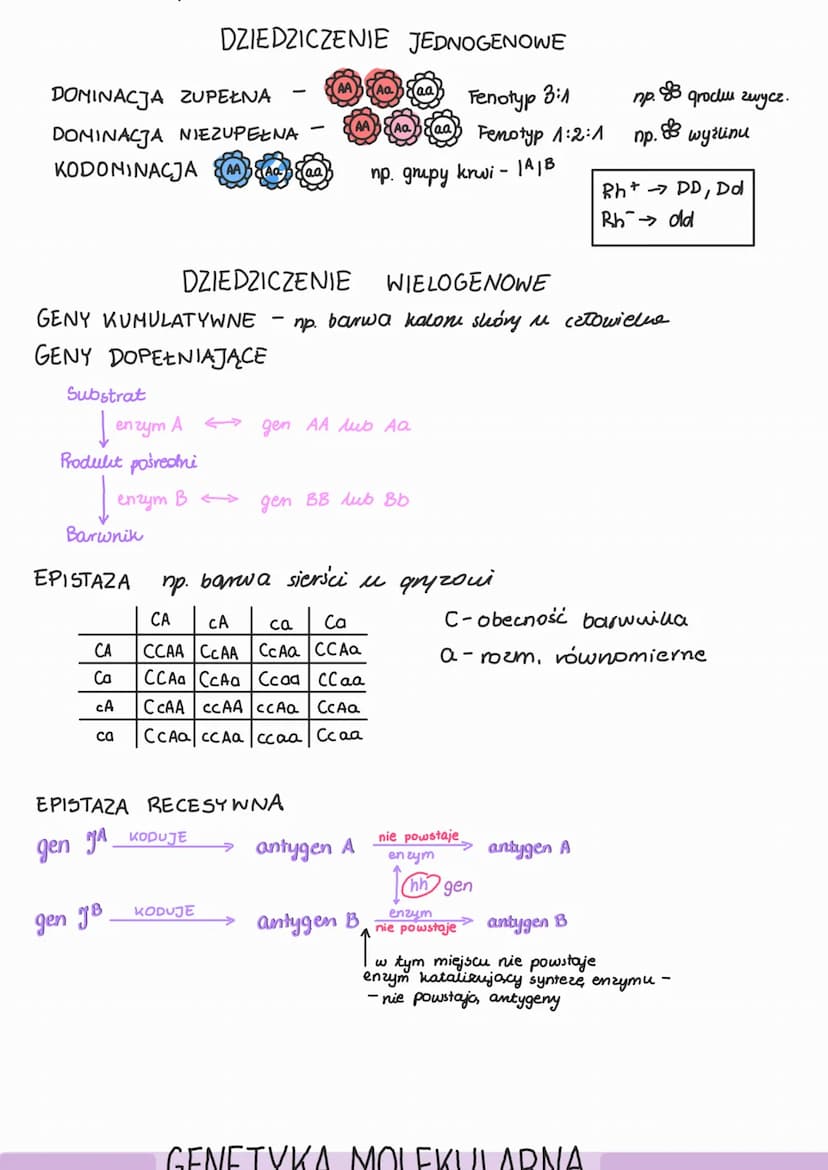 DZIEDZICZENIE JEDNOGENOWE
DOMINACJA ZUPEŁNA - AA Aa aa Fenotyp 3:1 np. grochu zwycz.
DOMINACJA NIEZUPEŁNA - AA Aa aa Fenotyp 1:2:1 np. wyżlinu
KODOMINACJA AA Aa aa np. grupy krwi - IAIB
Rh+ → DD, Dd
Rh- → dd
DZIEDZICZENIE WIELOGENOWE
GENY KUMULATYWNE - np. barwa koloru skóry u człowieka
GENY DOPEŁNIAJĄCE
Substrat
enzym A ↔ gen AA lub Aa
Produkt pośredni
enzym B ↔ gen BB lub Bb
Barwnik
EPISTAZA np. barwa sierści u gryzoni
CA cA ca Ca
CA CCAA CcAA CcAa CCAa
Ca CCAa CcAa Ccaa CCaa
cA CcAA ccAA ccAa CcAa
ca CcAa ccAa ccaa Ccaa
C - obecność barwnika
a - rozm. równomierne
EPISTAZA RECESYWNA
gen JA KODUJE → antygen A nie powstaje enzym → antygen A
hh gen
gen JB KODUJE → antygen B enzym nie powstaje → antygen B
w tym miejscu nie powstaje
enzym katalizujący syntezę enzymu -
- nie powstają antygeny
GENETYKA MOLEKULARNA